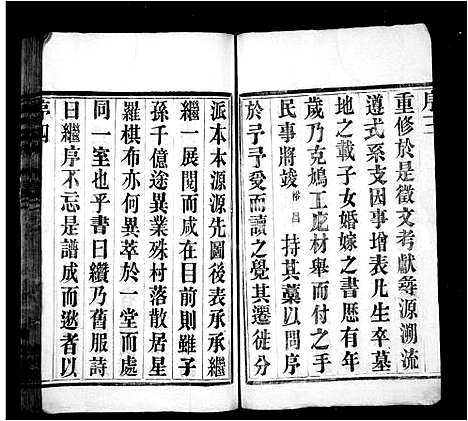 序三
重修於是徵文考獻尋源溯流
遵式系支因事增表凡生卒墓
地之載子女婚嫁之書歷有年
歲乃克鳩工庀材舉而付之
民事將竣裕昌持其藁以問序
於予予受而讀之覺其遷徙分
派本本源源先圖後表承承繼
繼一展閱而咸在目前則雖子
孫千億途異業殊村落散居星
羅棋布亦何異萃於一堂而處
同一室也乎書曰纘乃舊服詩
曰繼序不忘是譜成而遜者以
序四